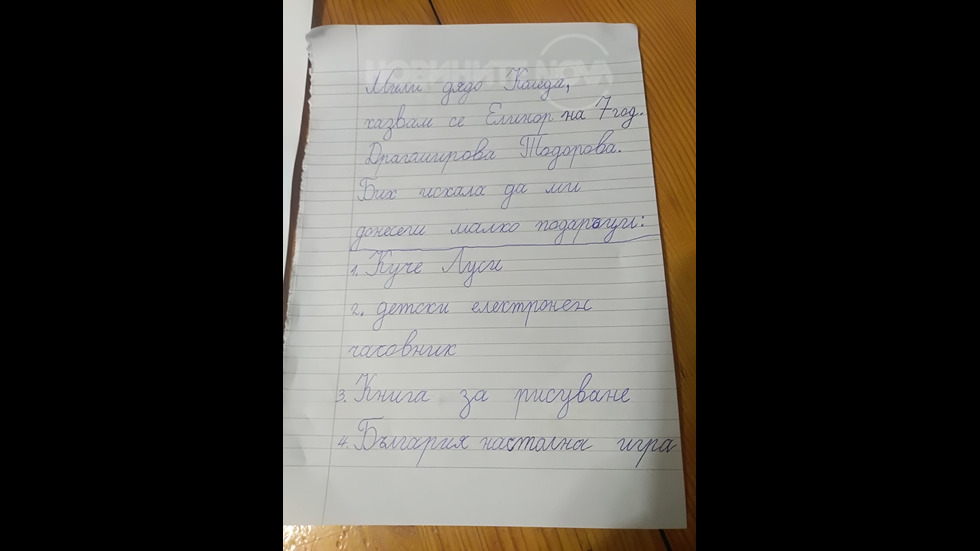 НОВИНИТЕ NOVA
Мили дядо Коледа,
казвам се Елинор на 7 год.
Драгомирова Тодорова.
Бих искала да ми
донесеш малко подаръци:
1. Куче Луси
2. детски електронен
часовник
3. Книга за рисуване
4. България настолна игра